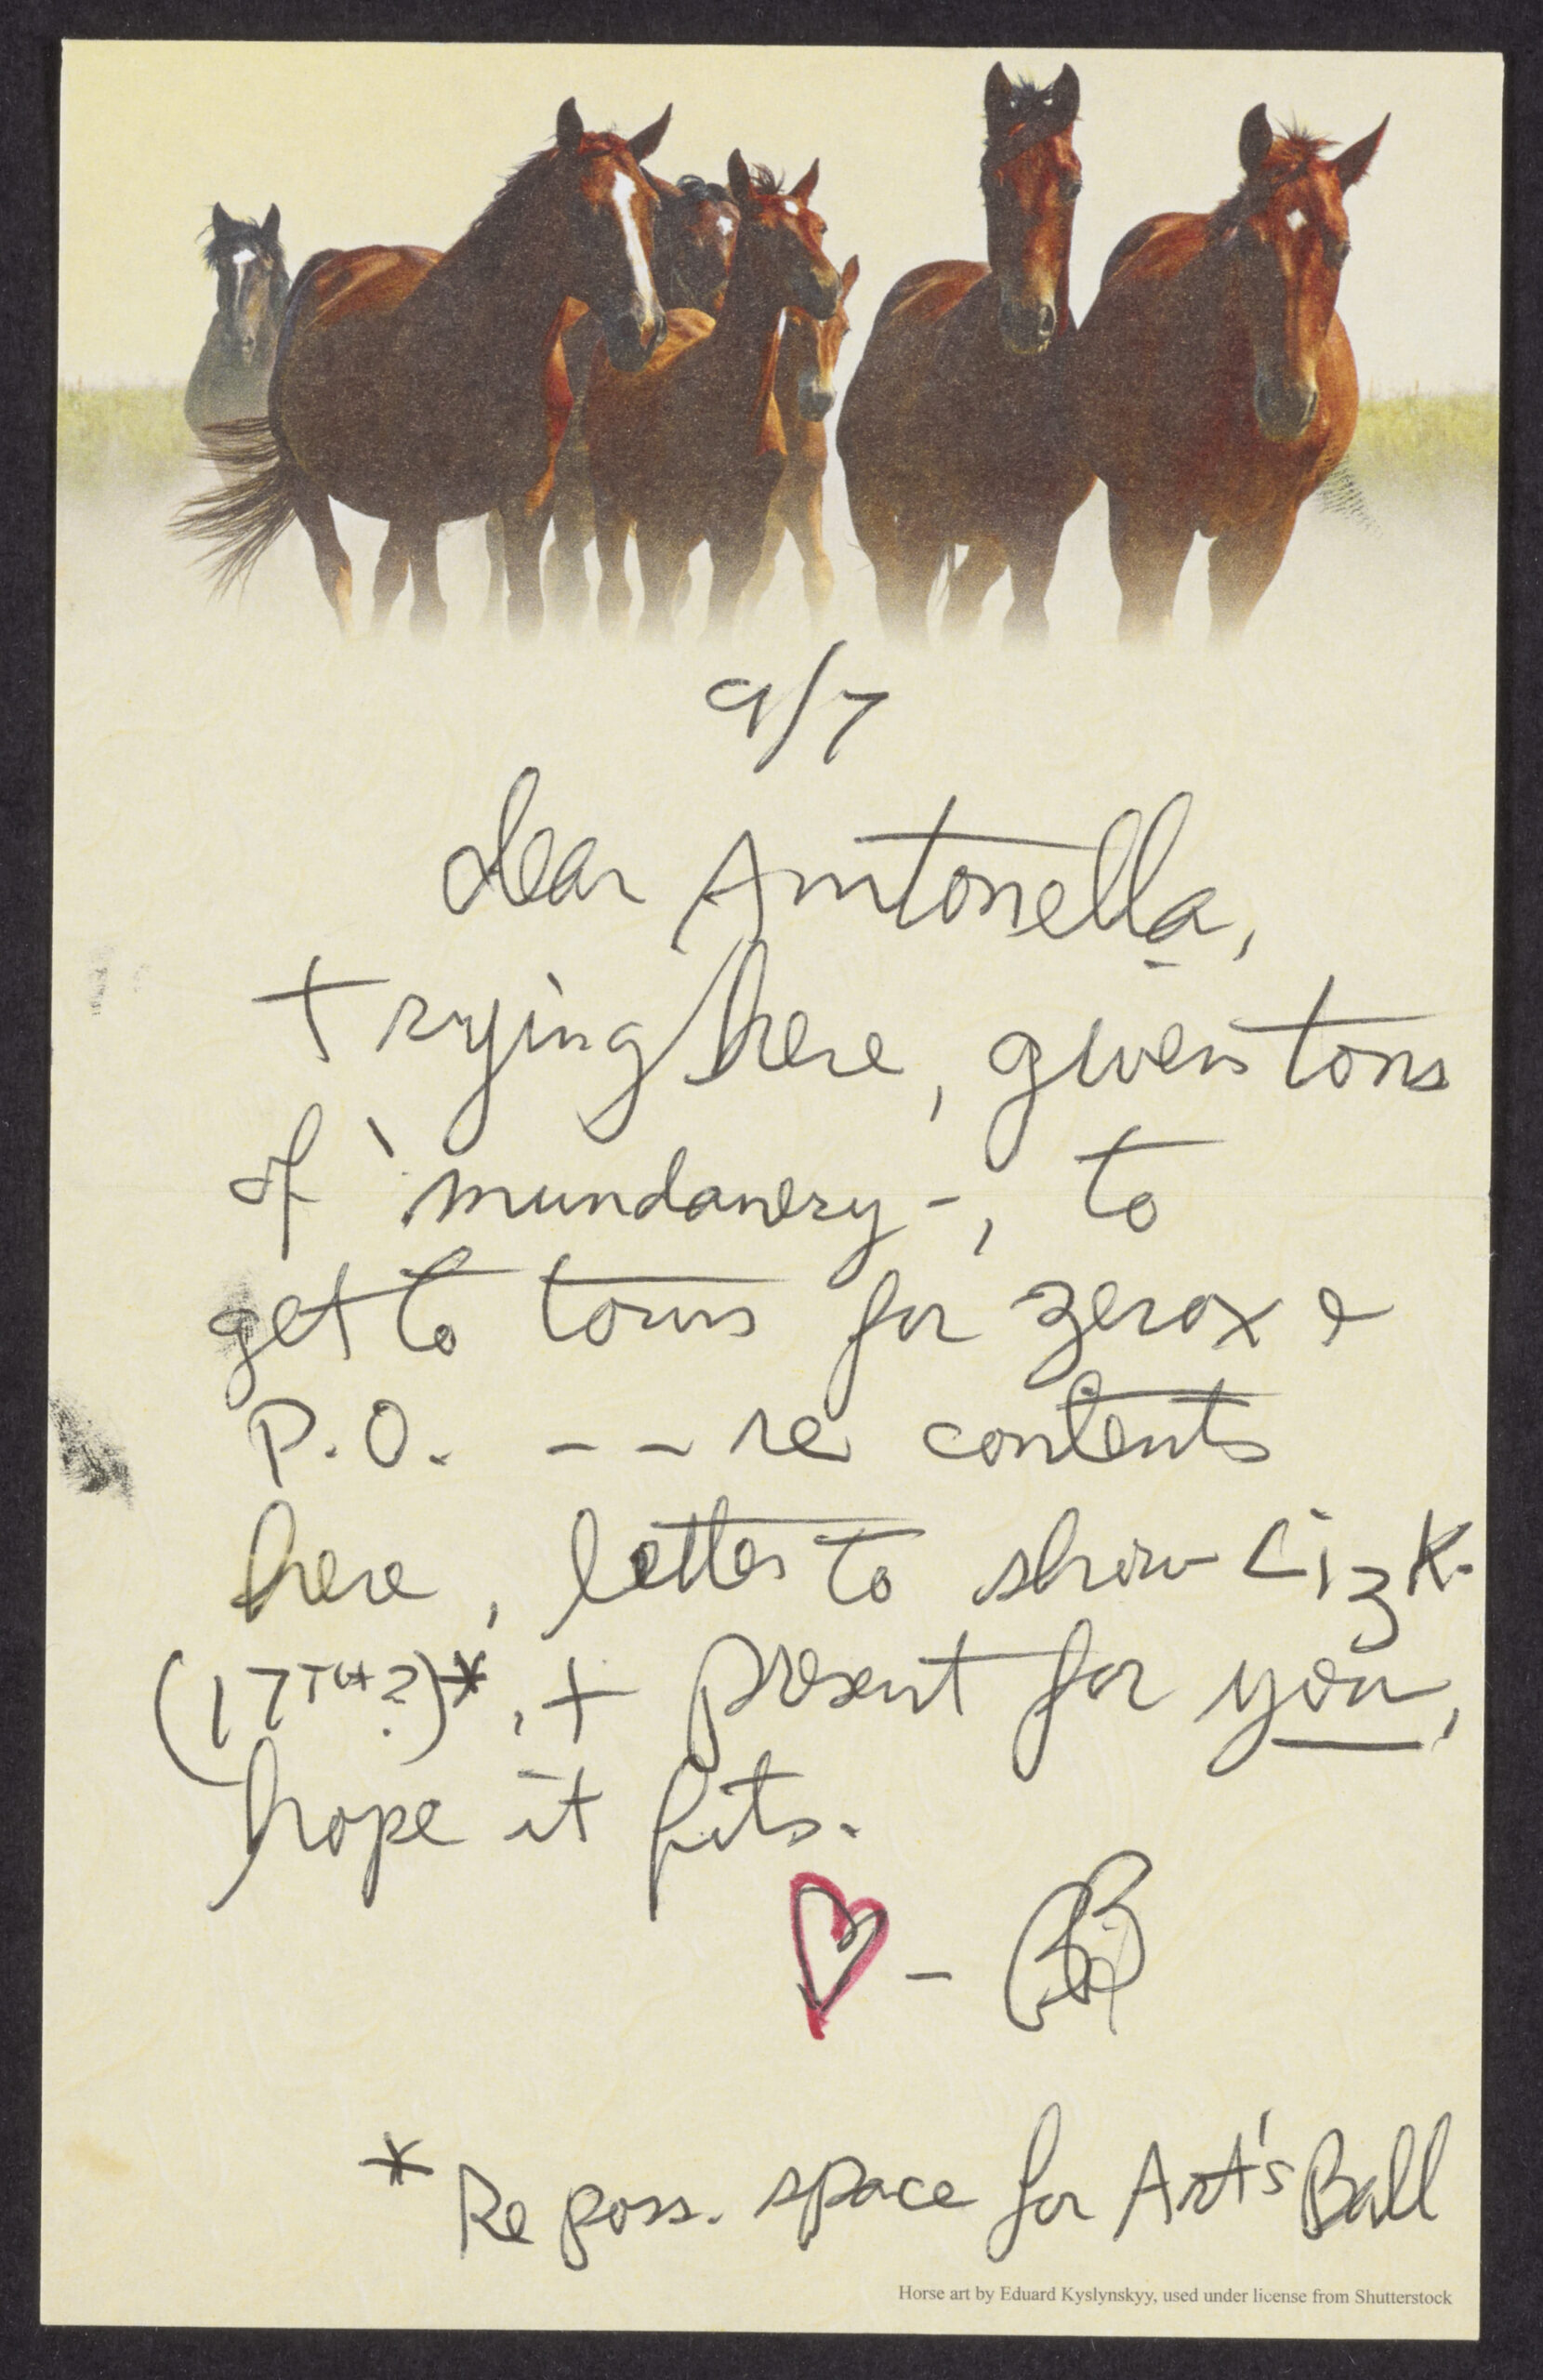 9/7
dear Antonella,
trying here, given tons
of 'mundanery-, to
get to town for zerox &
P.O. -- re contents
here, letter to show Liz K.
(17TH?)*, + present for you,
hope it fits.
♡ -
* Re poss. space for Art's Ball
Horse art by Eduard Kyslynskyy, used under license from Shutterstock